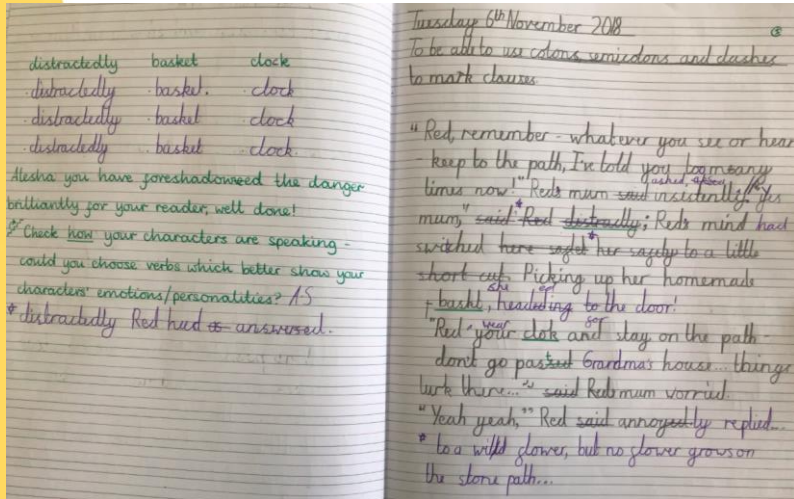 distractedly basket clock
distractedly basket. clock
distractedly basket clock
distractedly basket clock.
Alesha you have foreshadowed the danger
brilliantly for your reader, well done!
Check how your characters are speaking -
could you choose verbs which better show your
characters' emotions/personalities? AS
* distractedly Red had as answered.
Tuesday 6th November 2018
To be able to use colons, semicolons and dashes
to mark clauses.
"Red, remember - whatever you see or hear
- keep to the path, I've told you too many
times now!" Red's mum said insistently. "Yes
mum," said * Red distractly; Red's mind had
switched here saget * her sagety to a little
short cut. Picking up her homemade
she ed
baskt, heading to the door!
wear for
"Red - your clok and stay on the path -
don't go pasted Grandma's house... things
lurk there..." said Red's mum worried.
"Yeah yeah," Red said annoyedly replied...
* to a wild flower, but no flower grows on
the stone path...